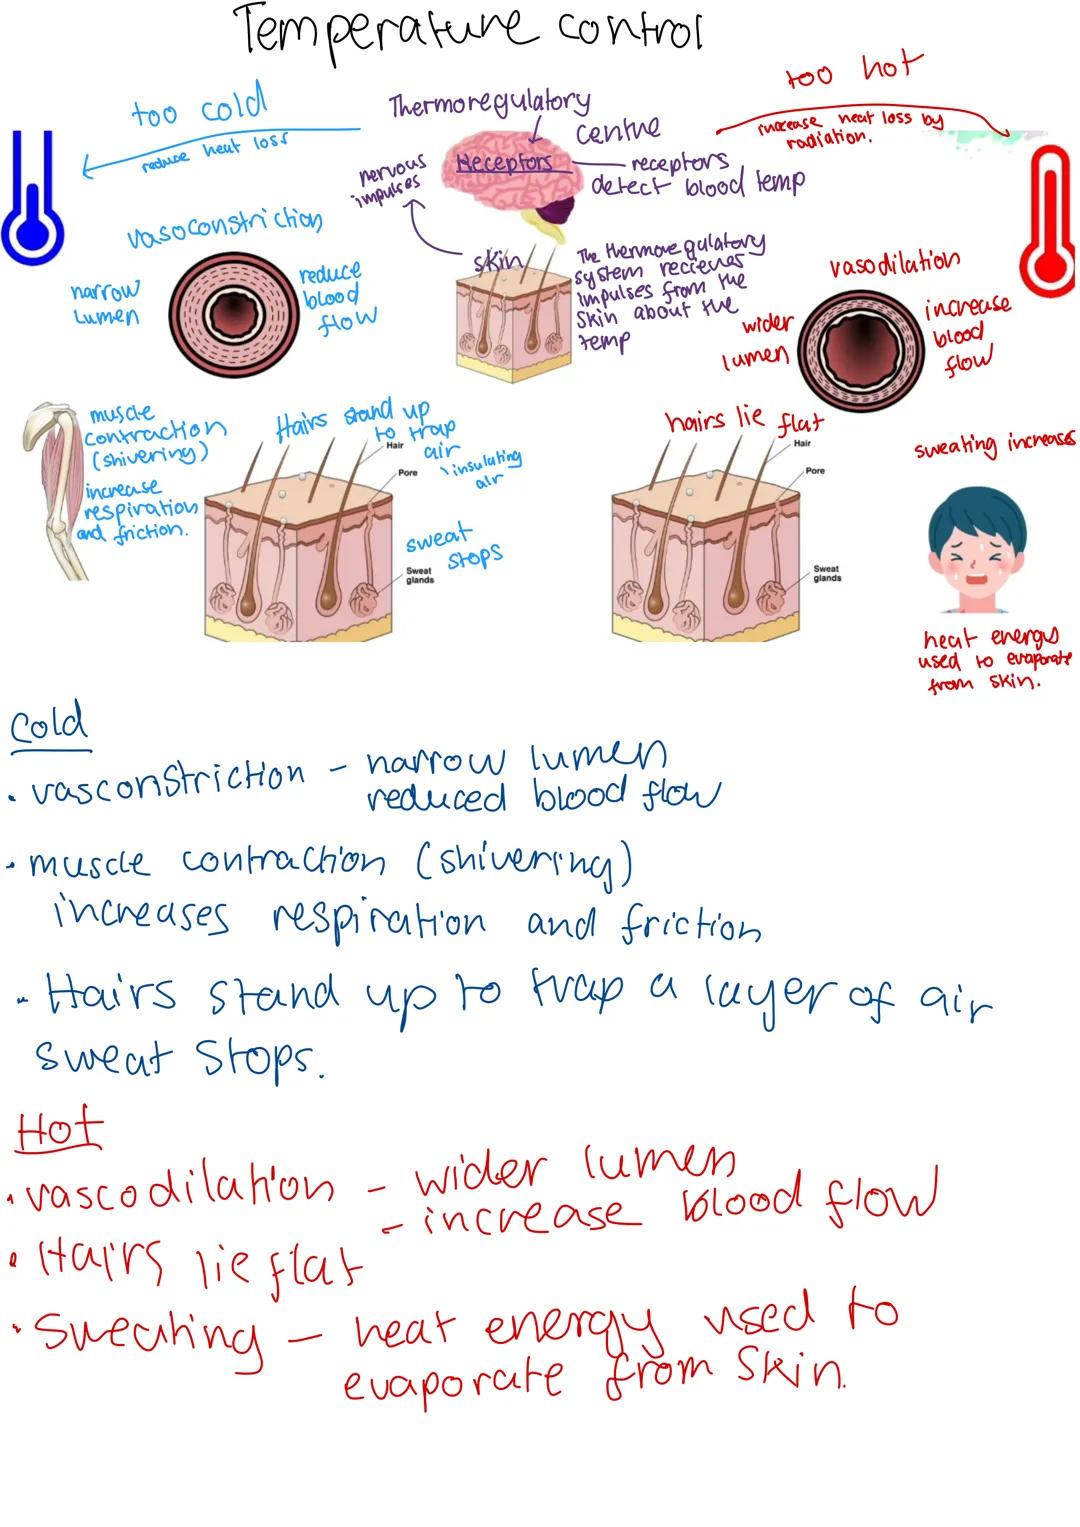 Temperature control
too cold
reduce heat loss
Thermoregulatory
centre
Receptors
receptors
detect blood temp
nervous
impulses
skin
The thermoregulatory
system recieves
impulses from the
skin about the
temp
too hot
increase heat loss by
radiation.
vasoconstriction
narrow
lumen
reduce
blood
flow
vasodilation
wider
lumen
increase
blood
flow
muscle
contraction
(shivering)
increase
respiration
and friction.
Hairs stand up
to trap
air
insulating
air
Hair
Pore
sweat
stops
Sweat
glands
hairs lie flat
Hair
Pore
Sweat
glands
sweating increases
heat energy
used to evaporate
from skin.
Cold
• vasconstriction - narrow lumen
reduced blood flow
• muscle contraction (shivering)
increases respiration and friction
- Hairs stand up to trap a layer of air
sweat stops.
Hot
• vascodilation - wider lumen
- increase blood flow
• Hairs lie flat
• Sweating - heat energy used to
evaporate from skin.